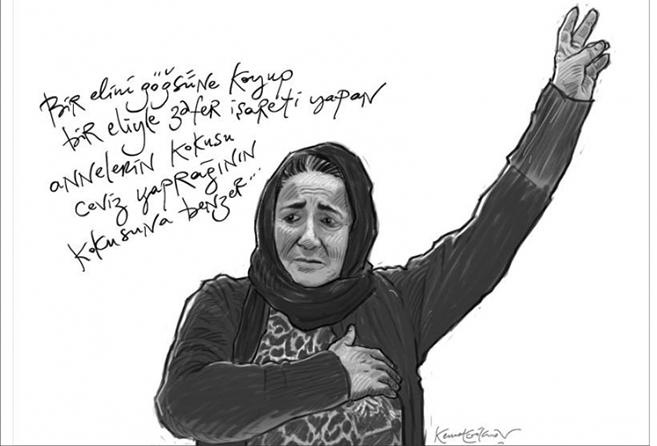 Bir elini göğsüne koyup
bir eliyle zafer işareti yapan
annelerin kokusu
ceviz yaprağının
kokusuna benzer...